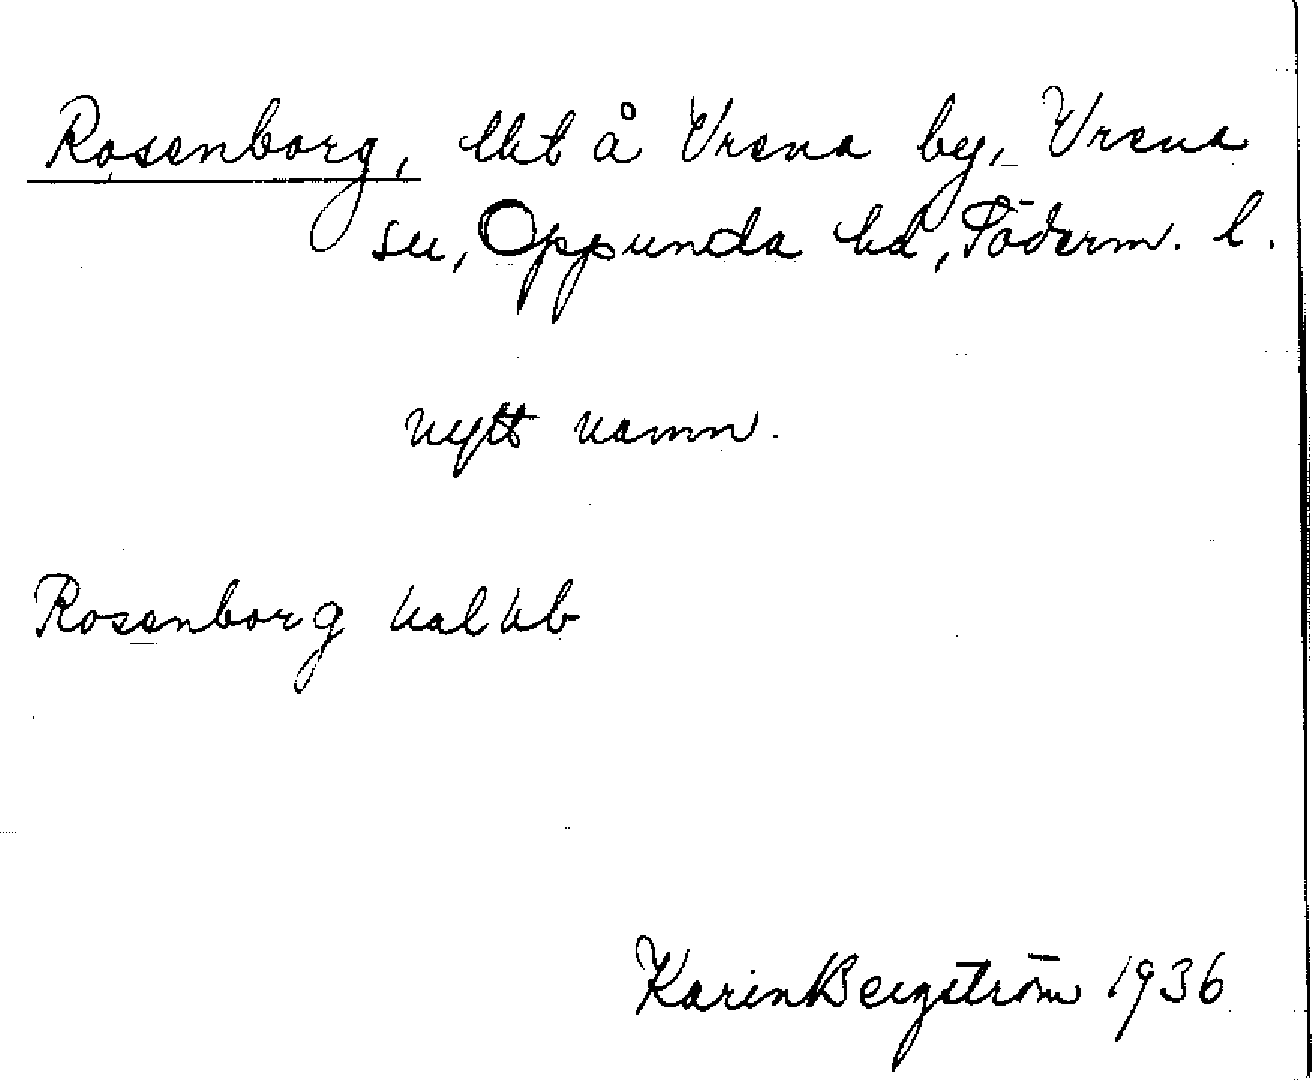 Rosenborg, lht å Vrena by, Vrena
sn, Oppunda hd, Söderm. l.
nytt namn.
Rosenborg
Karin Bergström 1936